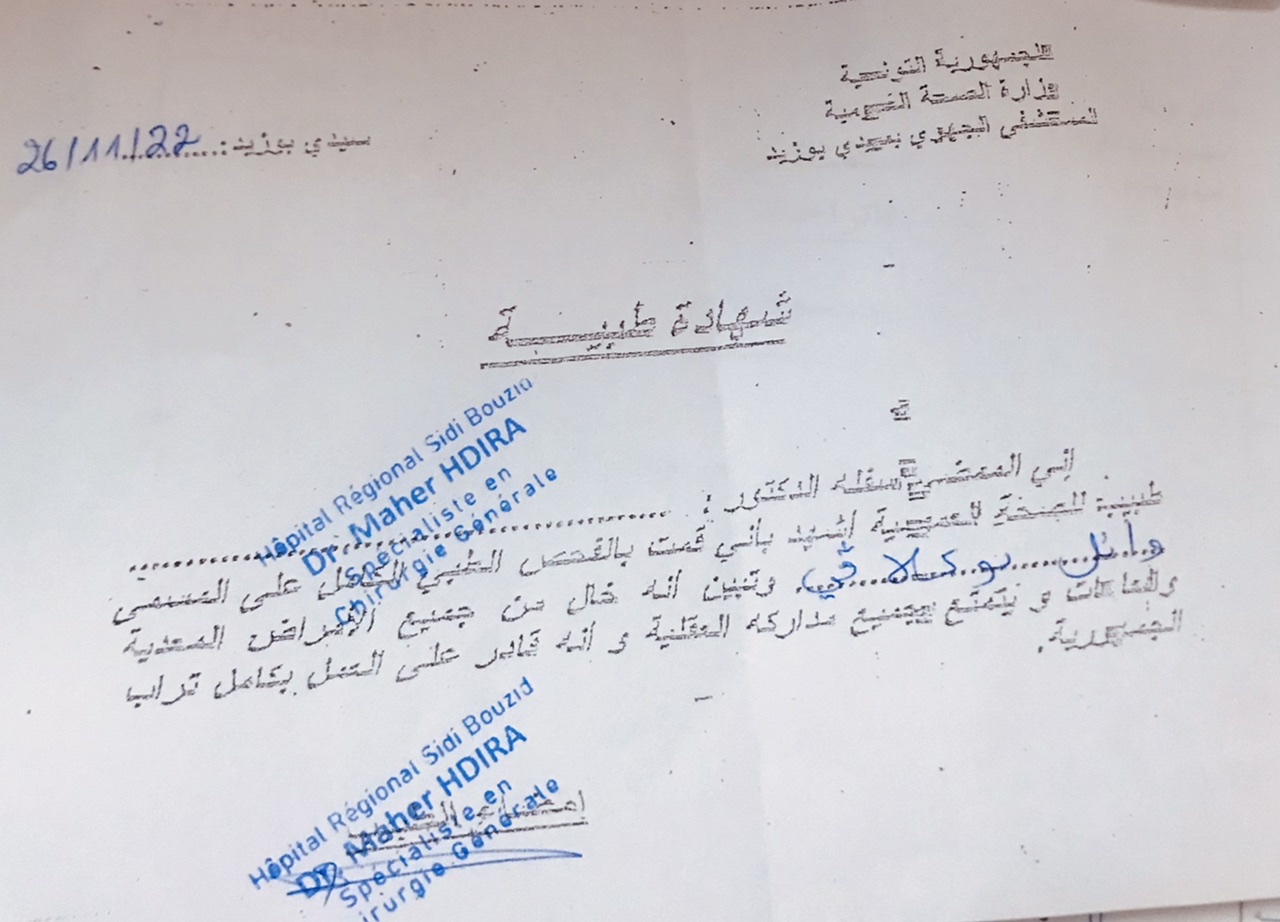 الجمهورية التونسية
وزارة الصحة العمومية
المستشفى الجهوي بسيدي بوزيد
سيدي بوزيد :........... 26/11/22
شهادة طبيـــــة
إني الممضي أسفله الدكتور : ..................
طبيب الصحة العمومية اشهد بأني قمت بالفحص الطبي الكامل على المسمى
وائل ............ وتبين أنه خال من جميع الأمراض المعدية
والعاهات و يتمتع بجميع مداركه العقلية و أنه قادر على التنقل بكامل تراب
الجمهورية.
Hôpital Régional Sidi Bouzid
Dr. Maher HDIRA
Spécialiste en
Chirurgie Générale
إمضاء الطبيب
Hôpital Régional Sidi Bouzid
Dr. Maher HDIRA
Spécialiste en
irurgie Générale